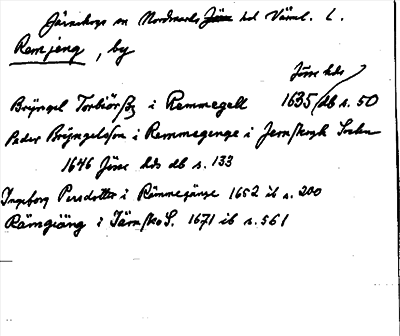 Järnskogs sn Nordmarks hd Värml. l.
Remjeng, by
Jösse hds
Bryngel Torbiörss i Remmegell 1635 db s. 50
Peder Bryngelsson i Remmegenge i Jernskogh Sochn
1646 Jösse hds db s. 133
Ingeborg Persdotter i Rämmegänge 1652 ib s. 200
Rämgiäng i Järnsko S. 1671 ib s. 561